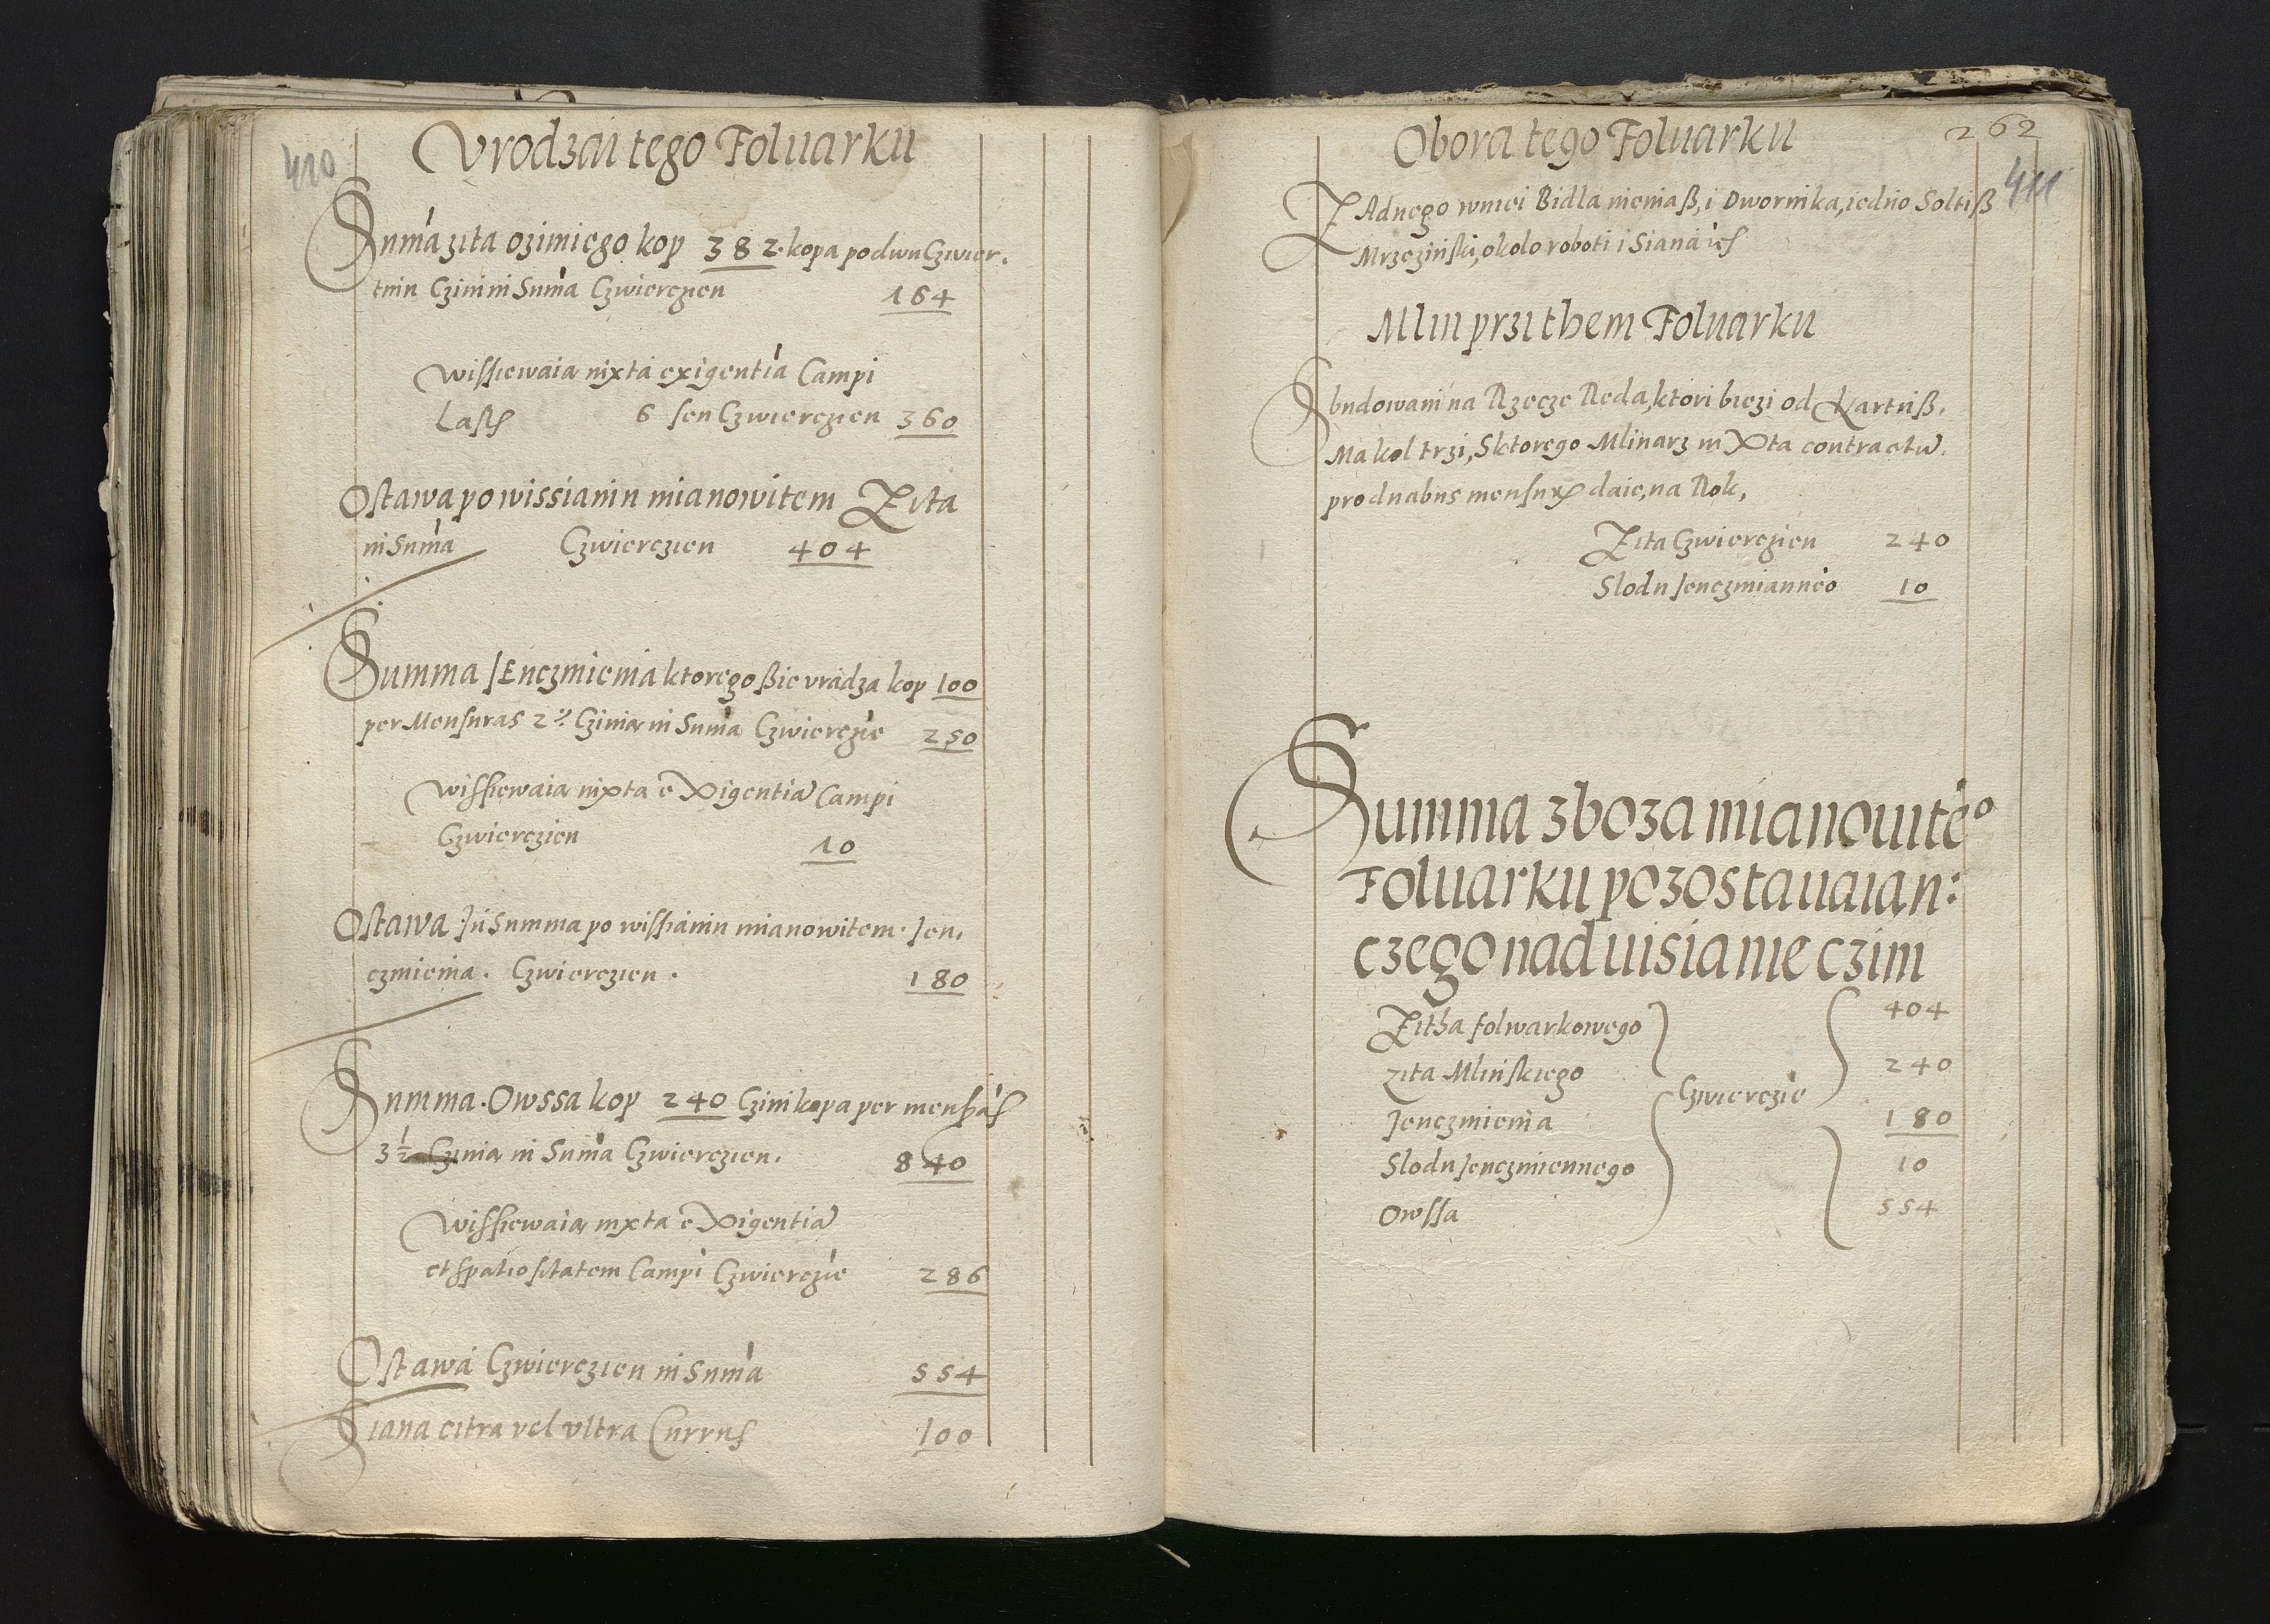 410
Vrodzai tego Foluarku
Suma zita ozimiego kop 382. kopa po dwu Czwier,
tniu Czini in Suma Czwierczien 164
wissiewaia iuxta exigentia Campi
Last 6 seu Czwierczien 360
Ostawa po wissianiu mianowitem Zita
in Suma Czwierczien 404
Summa Jenczmienia ktorego ßie vradza kop 100
per Mensuras 2 Czinia in Suma Czwierczie 250
wissiewaia iuxta eXigentia Campi
Czwierczien 10
Ostawa in Summa po wissianiu mianowitem Jen,
czmienia. Czwierczien. 180
Summa. Owssa kop 240 Czini kopa per mensuras
3 1/2 Czinia in Suma Czwierczien. 840
Wissiewaia iuxta eXigentia
et spatiositatem Campi Czwierczie 286
Ostawa Czwierczien in Suma 554
Siana citra vel vltra Currus 100
262
411
Obora tego Foluarku
ZAdnego wniei Bidla niemaß, i Dwornika, iedno Soltiß
Mrzeziński, okolo roboti i Siana iest
Mlin przi them Foluarku
Sbudowani na Rzecze Reda, ktori biezi od Kartuß,
Ma kol trzi, Sktorego Mlinarz iuXta contractu,
pro duabus mensuris daie, na Rok,
Zita Czwierczien 240
Slodu Jenczmianneo 10
Summa zboza mianouiteo
Foluarku pozostauaian:
czego nad uisianie czim
Zitha folwarkowego 404
zita Mlinskiego 240
Czwierczie
Jenczmienia 180
Slodu Jenczmiennego 10
Owssa 554